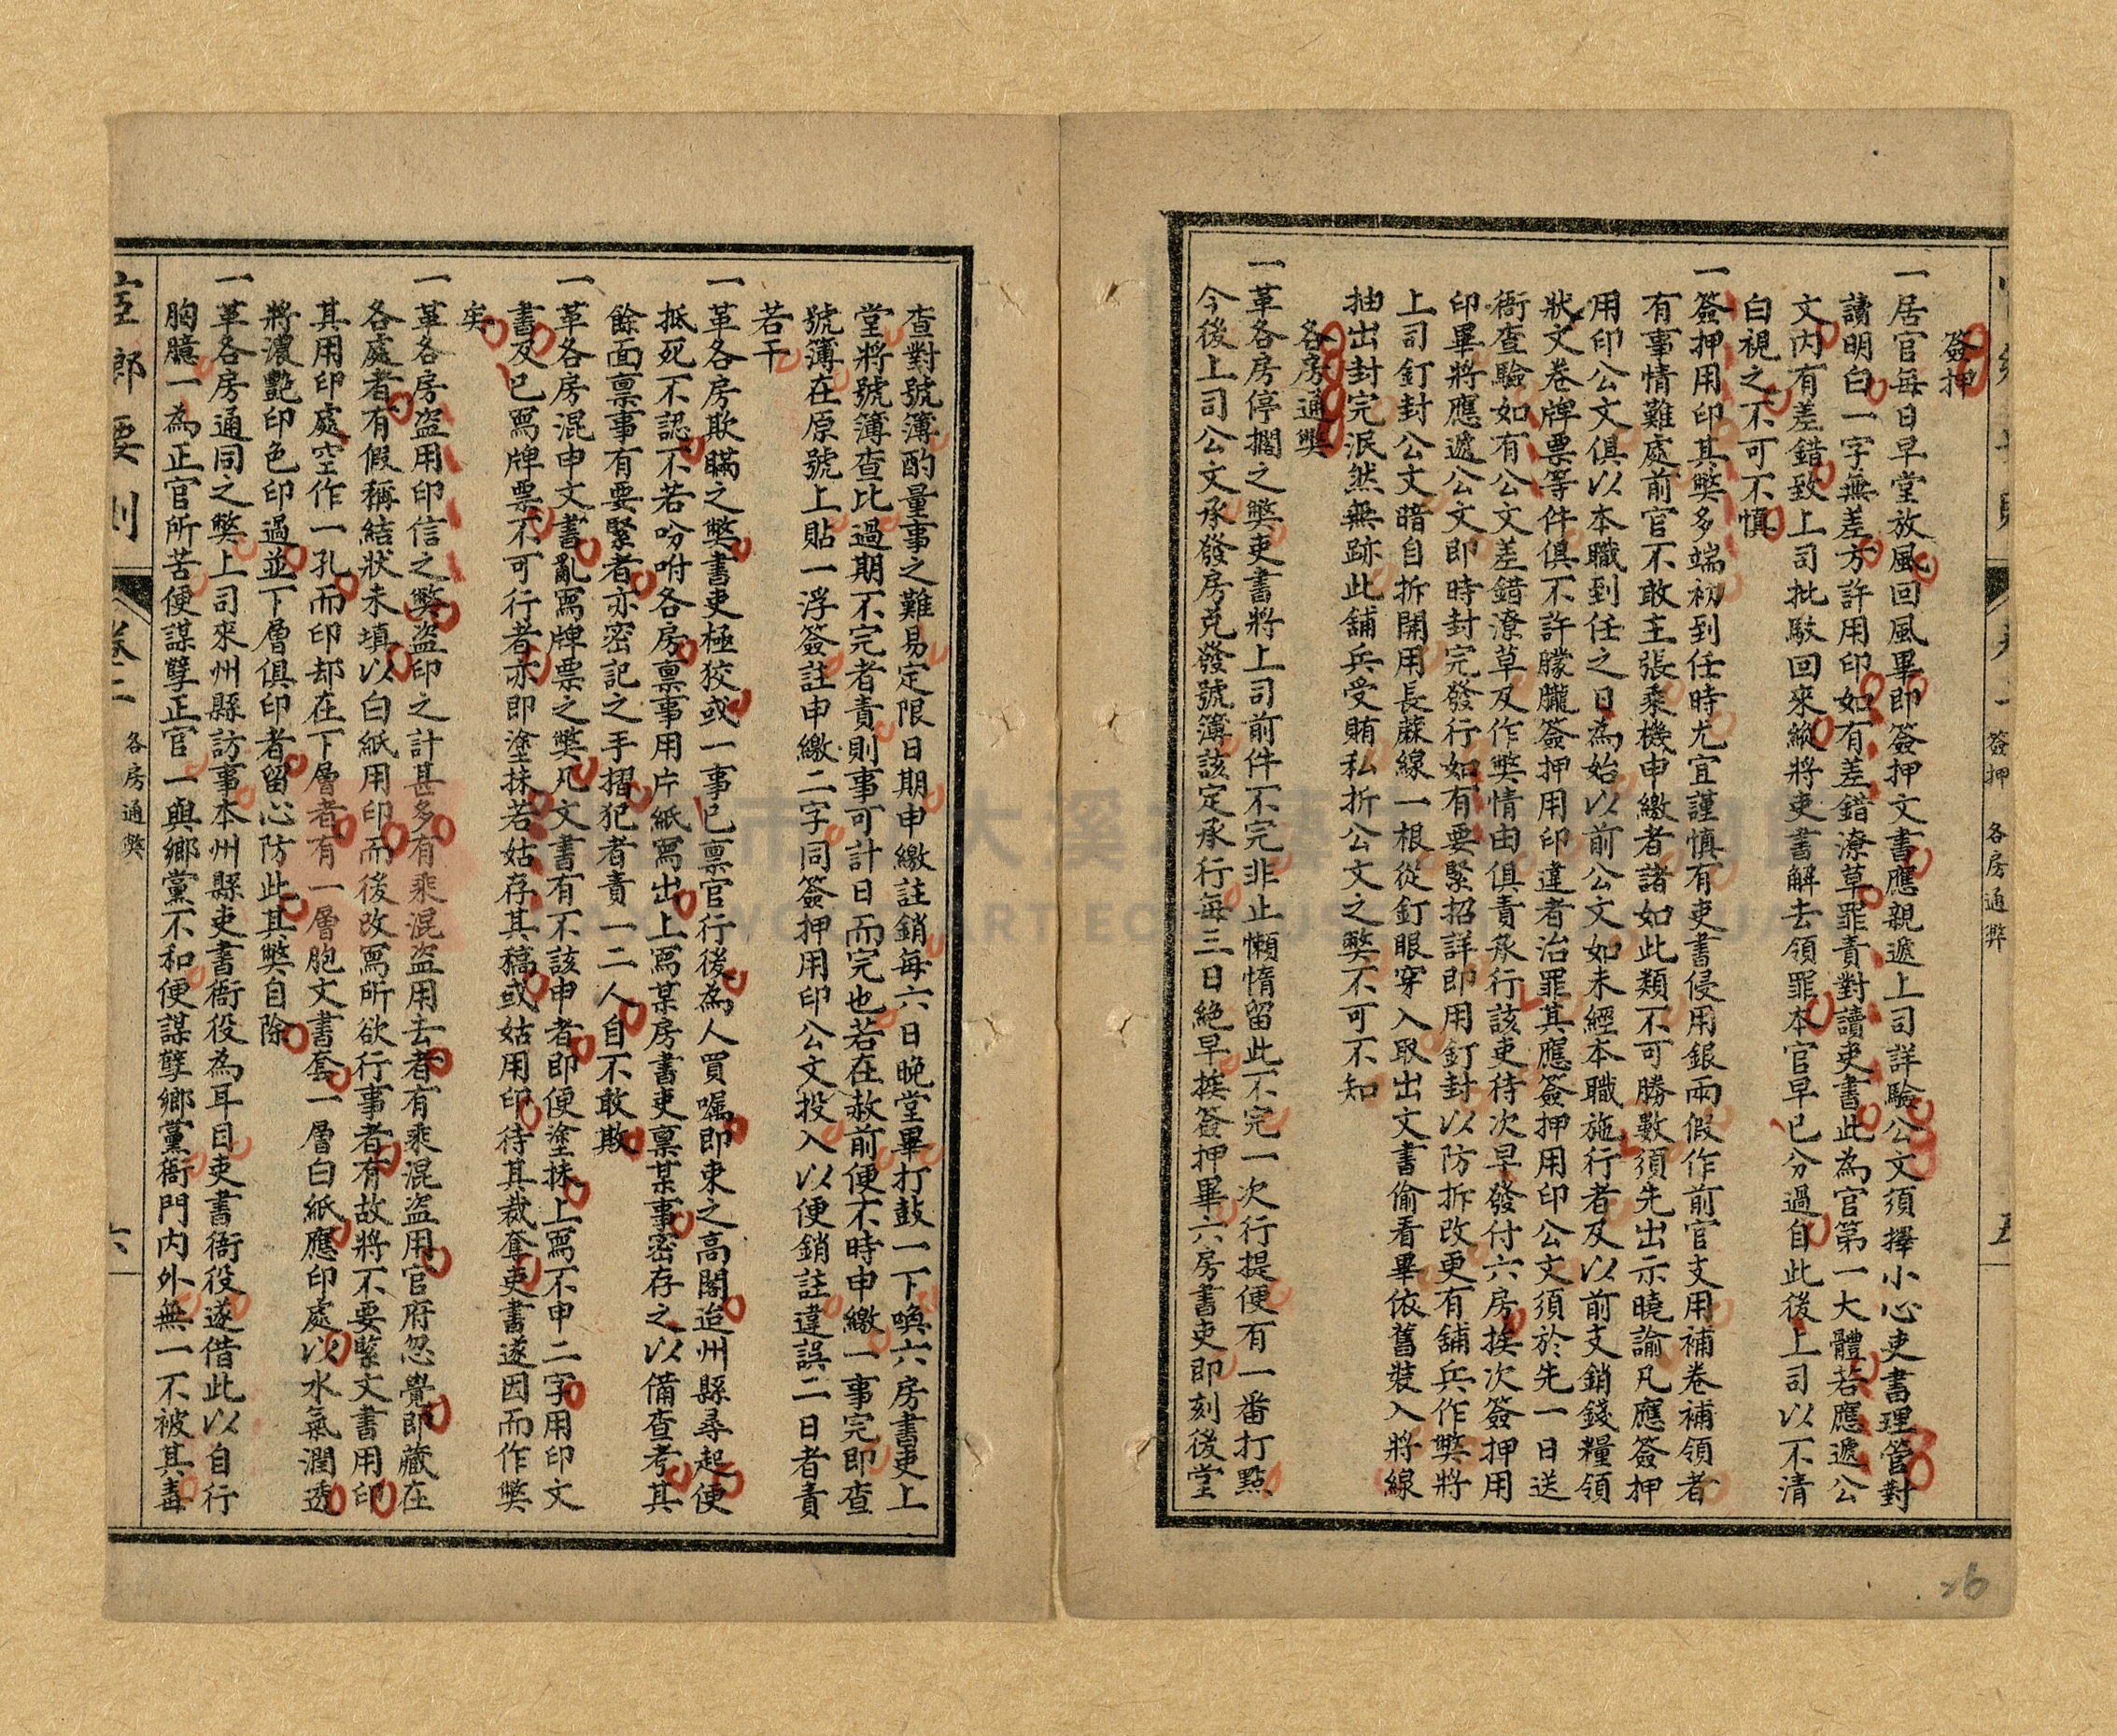 簽押
一居官每日早堂放風回風畢即簽押文書應親遞上司詳驗公文須擇小心吏書理管對
讀明白一字無差方許用印如有差錯潦草罪責對讀吏書此為官第一大體若應遞公
文內有差錯致上司批駁回來縱將吏書解去領罪本官早已分過自此後上司以不清
白視之不可不慎
一簽押用印其獘多端初到任時尤宜謹慎有吏書侵用銀兩假作前官支用補卷補領者
有事情難處前官不敢主張乘機申繳者諸如此類不可勝數須先出示曉諭凡應簽押
用印公文俱以本職到任之日為始以前公文如未經本職施行者及以前支銷錢糧領
狀文卷牌票等件俱不許朦朧簽押用印違者治罪其應簽押用印公文須於先一日送
衙查驗如有公文差錯潦草及作獘情由俱責承行該吏待次早發付六房挨次簽押用
印畢將應遞公文即時封完發行如有要緊招詳即用釘封以防拆改更有舖兵作獘將
上司釘封公文暗自拆開用長蔴線一根從釘眼穿入取出文書偷看畢依舊裝入將線
抽出封完泯然無跡此舖兵受賄私折公文之獘不可不知
各房通獘
一革各房停擱之獘吏書將上司前件不完非止懶惰留此不完一次行提便有一番打點
今後上司公文承發房克發號簿該定承行每三日絕早挨簽押畢六房書吏即刻後堂
簽押 各房通獘
五
26
查對號簿酌量事之難易定限日期申繳註銷每六日晚堂畢打鼓一下喚六房書吏上
堂將號簿查比過期不完者責則事可計日而完也若在赦前便不時申繳一事完即查
號簿在原號上貼一浮簽註申繳二字同簽押用印公文投入以便銷註違誤二日者責
若干
一革各房欺瞞之獘書吏極狡或一事已禀官行後為人買囑即束之高閣迨州縣尋起便
抵死不認不若吩咐各房禀事用片紙寫出上寫某房書吏禀某事密存之以備查考其
餘面禀事有要緊者亦密記之手摺犯者責一二人自不敢欺
一革各房混申文書亂寫牌票之獘凡文書有不該申者即便塗抹上寫不申二字用印文
書及已寫牌票不可行者亦即塗抹若姑存其稿或姑用印待其裁奪吏書遂因而作獘
矣
一革各房盗用印信之獘盗印之計甚多有乘混盗用去者有乘混盗用官府忽覺即藏在
各處者有假稱結狀未填以白紙用印而後改寫所欲行事者有故將不要緊文書用印
其用印處空作一孔而印却在下層者有一層胞文書套一層白紙應印處以水氣潤透
將濃艷印色印過並下層俱印者留心防此其獘自除
一革各房通同之獘上司來州縣訪事本州縣吏書衙役為耳目吏書衙役遂借此以自行
胸臆一為正官所苦便謀孽正官一與鄉黨不和便謀孽鄉黨衙門內外無一不被其毒
要則
卷二
各房通獘
六